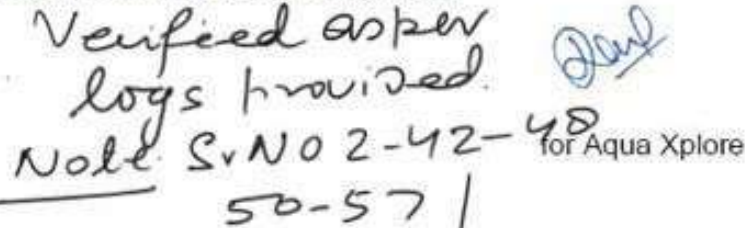 Verified as per
logs provided.
Note Sr NO 2-42-48
for Aqua Xplore
50-57